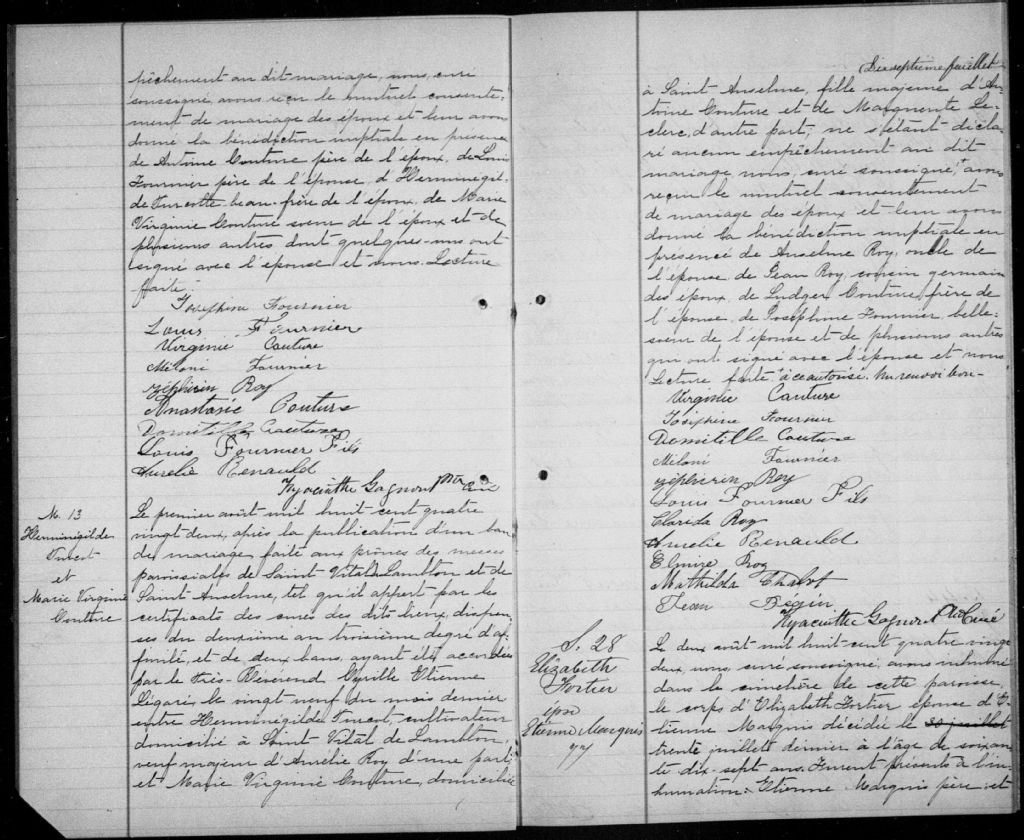 pêchement au dit mariage, nous, curé
soussigné, avons reçu le mutuel consente-
ment de mariage des époux et leur avons
donné la bénédiction nuptiale en présence
de Antoine Couture père de l'époux, de Louis
Fournier père de l'épouse, d'Herménégil-
de Turcotte beau-frère de l'époux, de Marie
Virginie Couture soeur de l'époux et de
plusieurs autres dont quelques-uns ont
signé avec l'épouse et nous. Lecture
faite.
Joséphine Fournier
Louis Fournier
Virginie Couture
Miloni Fournier
Zéphirin Roy
Anastasie Couture
Domitille Couture
Louis Fournier Fils
Aurelie Renauld
Hyacinthe Gagnon Ptre Curé
M. 13
Herménégilde
et
Marie Virginie
Couture
Le premier août mil huit cent quatre
vingt deux, après la publication d'un ban
de mariage faite aux prônes des messes
paroissiales de Saint Vital de Lambton et de
Saint Anselme, tel qu'il appert par les
certificats des curés des dits lieux, dispen-
ses du deuxième au troisième degré d'af-
finité, et de deux bans, ayant été accordées
par le Très-Révérend Cyrille Etienne
Légaré, le vingt neuf du mois dernier
entre Herménégilde cultivateur
domicilié à Saint Vital de Lambton,
veuf majeur d'Aurélie Roy d'une part;
et Marie Virginie Couture, domiciliée
Dix septième feuillet
à Saint Anselme, fille majeure d'An-
toine Couture et de Marguerite Le-
clerc, d'autre part; ne s'étant décla-
ré aucun empêchement au dit
mariage nous, curé soussigné, + avons
reçu le mutuel consentement
de mariage des époux et leur avons
donné la bénédiction nuptiale en
présence de Anselme Roy, oncle de
l'épouse, de Jean Roy, cousin germain
des époux, de Ludger Couture, frère de
l'épouse, de Joséphine Fournier, belle-
soeur de l'épouse et de plusieurs autres
qui ont signé avec l'épouse et nous
Lecture faite. + à ce autorisé. Un renvoi bon-
Virginie Couture
Joséphine Fournier
Domitille Couture
Miloni Fournier
Zéphirin Roy
Louis Fournier Fils
Clarida Roy
Aurelie Renauld
Elmire Roy
Mathilda Chabot
Jean Bégin
Hyacinthe Gagnon Ptre Curé
S. 28
Elizabeth
Fortier
épse
Etienne Marquis
77
Le deux août mil huit-cent quatre vingt
deux, nous, curé soussigné, avons inhumé
dans le cimetière de cette paroisse,
le corps d'Elizabeth Fortier épouse d'E-
tienne Marquis décédée le 30 juillet
trente juillet dernier à l'âge de soixan-
te dix-sept ans. Furent présents à l'in-
humation: Etienne Marquis père, et